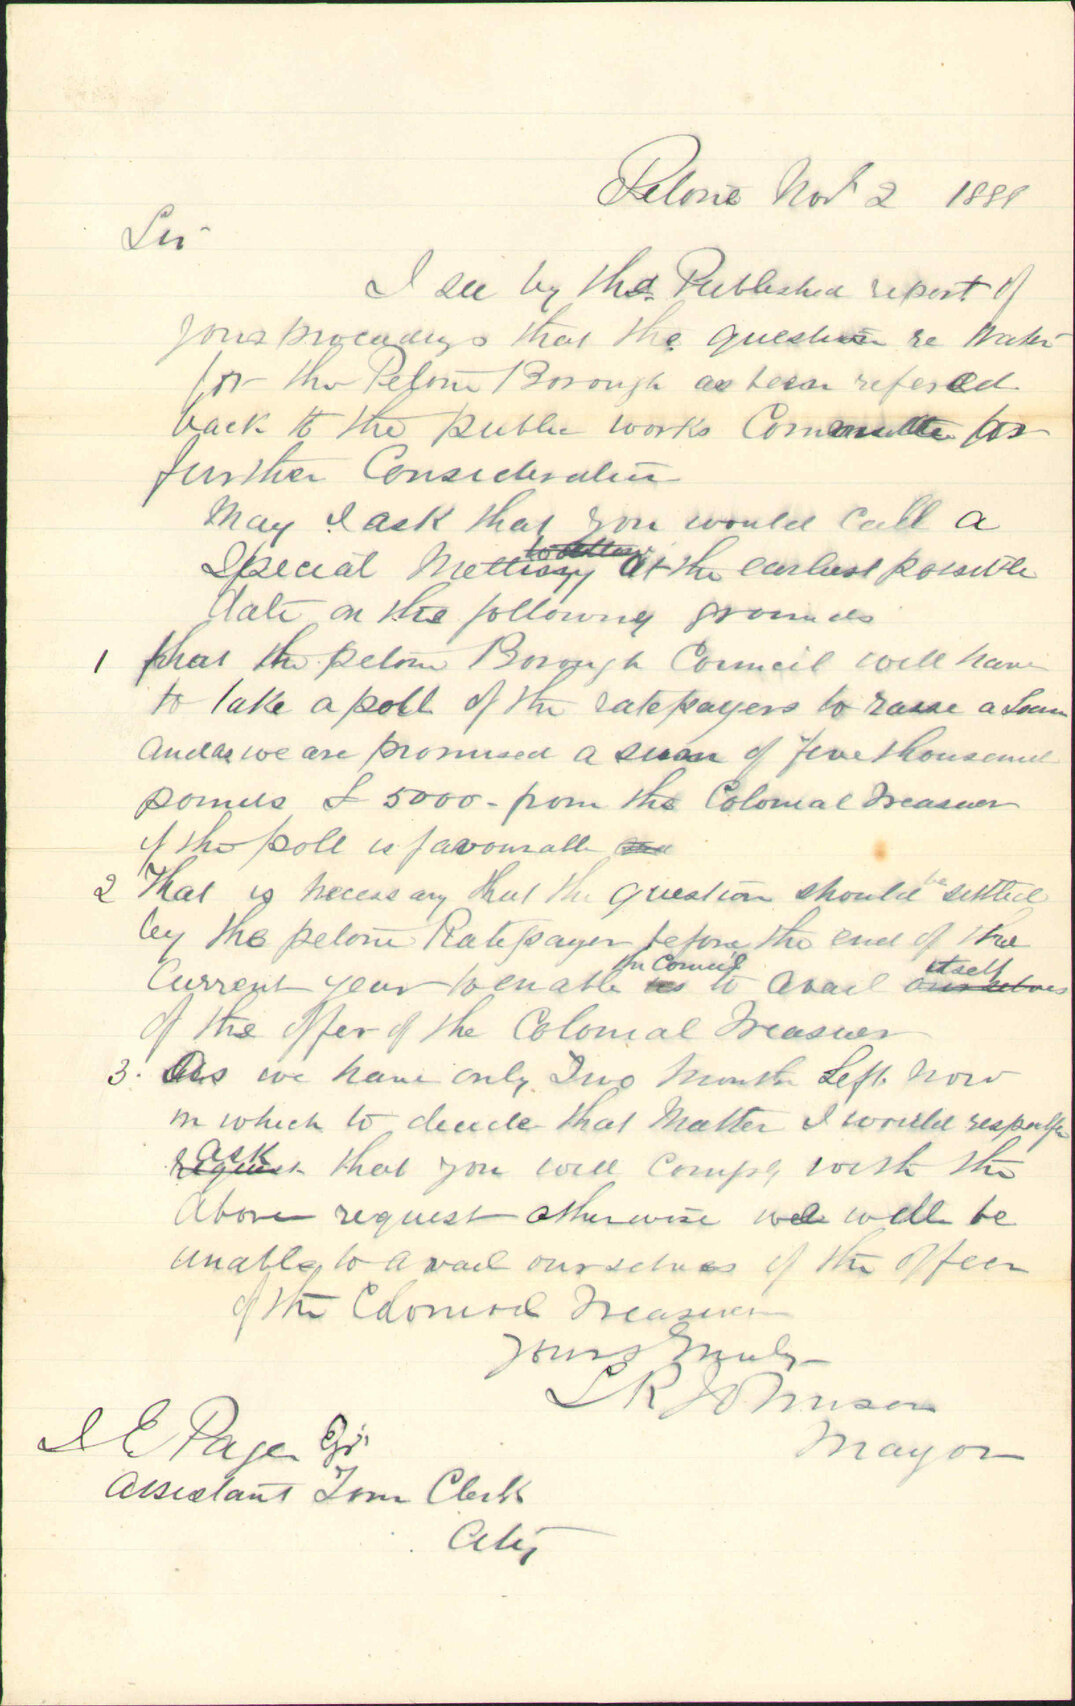 Petone Nov 2 1889
Sir
I see by the Published report of
your proceadings that the question re Water
for the Petone Borough as been refered
back to the public works Committee for
further Consideration
May I ask that you would call a
Special Metting at the earliest possible
date on the following grounds
1 that the petone Borough Council will have
to take a poll of the ratepayers to raise a Loan
and as we are promised a sum of five thousand
pounds £ 5000 - from the Colonial Treasurer
if the poll is favourable
2 That is necessary that the question should be settled
by the petone Ratepayer before the end of the
the Council itself
Current year to enable us to avail ourselves
of the offer of the Colonial Treasurer
3. As we have only Two Month Left now
in which to decide that Matter I would respectfully
ask
request that you will comply with the
above request otherwise we will be
unable to avail ourselves of the offer
of the Colonial Treasurer
Yours Truly
R Johnson
Mayor
E Page Esqr
Assistant Town Clerk
City